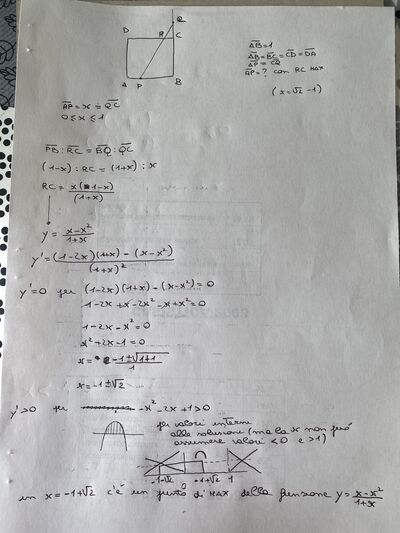 Q
D R C
A P B
A̅B̅=1
A̅B̅=B̅C̅=C̅D̅=D̅A̅
A̅P̅=C̅Q̅
A̅P̅=? con RC MAX
(x=√2-1)
A̅P̅=x=Q̅C̅
0≤x≤1
P̅B̅:R̅C̅=B̅Q̅:Q̅C̅
(1-x):RC=(1+x):x
RC=x(1-x)/(1+x)
y=(x-x²)/(1+x)
y'=((1-2x)(1+x)-(x-x²))/(1+x)²
y'=0 per (1-2x)(1+x)-(x-x²)=0
1-2x+x-2x²-x+x²=0
1-2x-x²=0
x²+2x-1=0
x=(-1±√(1+1))/1
x=-1±√2
y'>0 per -x²-2x+1>0
per valori interni
alle soluzioni (ma la x non può
assumere valori <0 e >1)
-1-√2 0 -1+√2 1
in x=-1+√2 c'è un punto di MAX della funzione y=(x-x²)/(1+x)